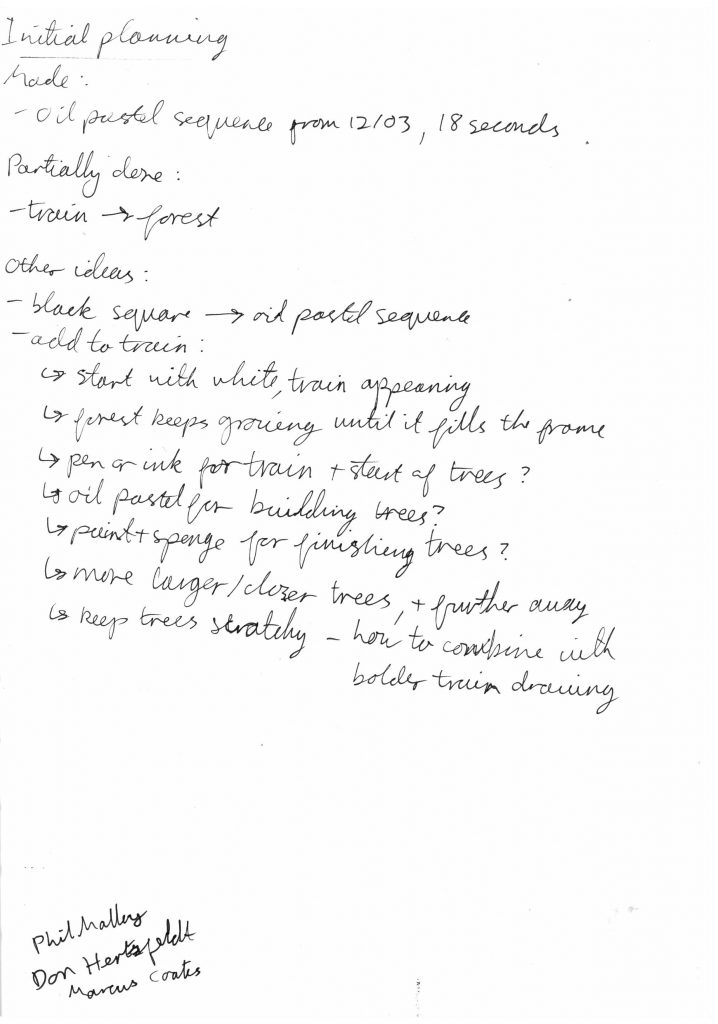 Initial planning
Made:
- oil pastel sequence from 12/03, 18 seconds.
Partially done:
- train → forest
Other ideas:
- black square → oil pastel sequence
- add to train:
↳ start with white, train appearing
↳ forest keeps growing until it fills the frame
↳ pen or ink for train + start of trees?
↳ oil pastel for building trees?
↳ paint + sponge for finishing trees?
↳ more larger/closer trees, + further away
↳ keep trees scratchy - how to combine with
bolder train drawing
Phil Mulloy
Don Hertzfeldt
Marcus Coates